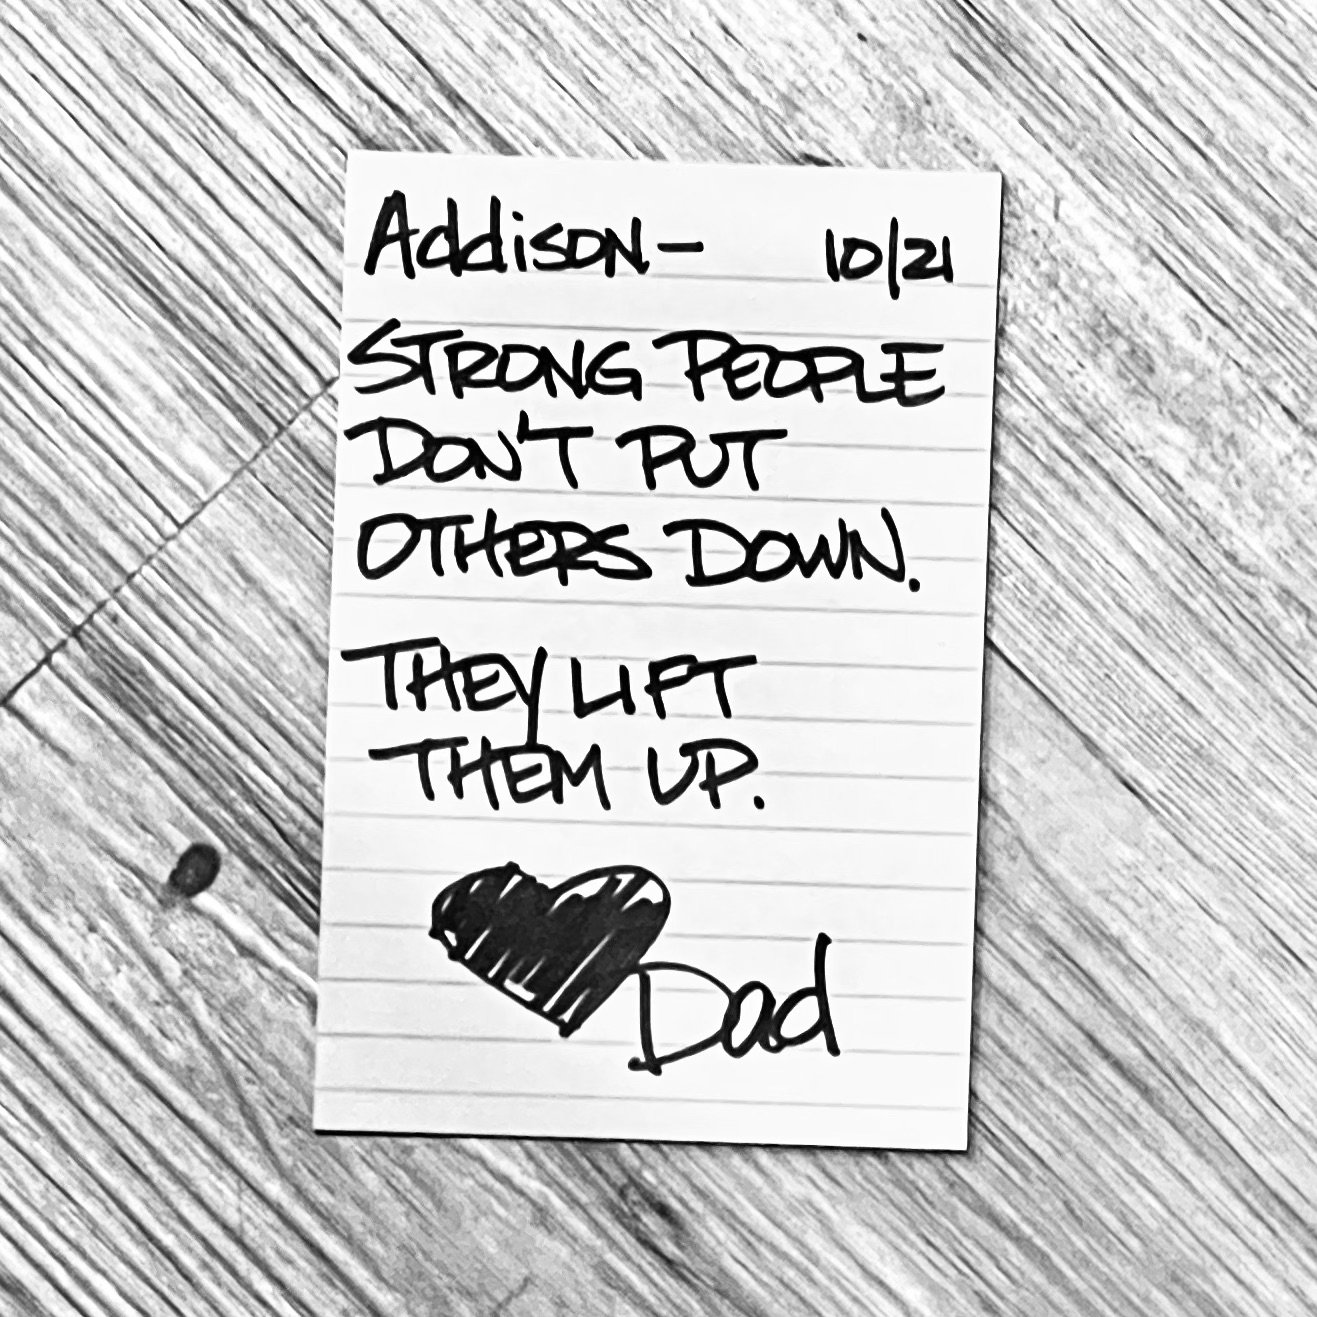 Addison— 10/21
STRONG PEOPLE
DON'T PUT
OTHERS DOWN.
THEY LIFT
THEM UP.
Dad